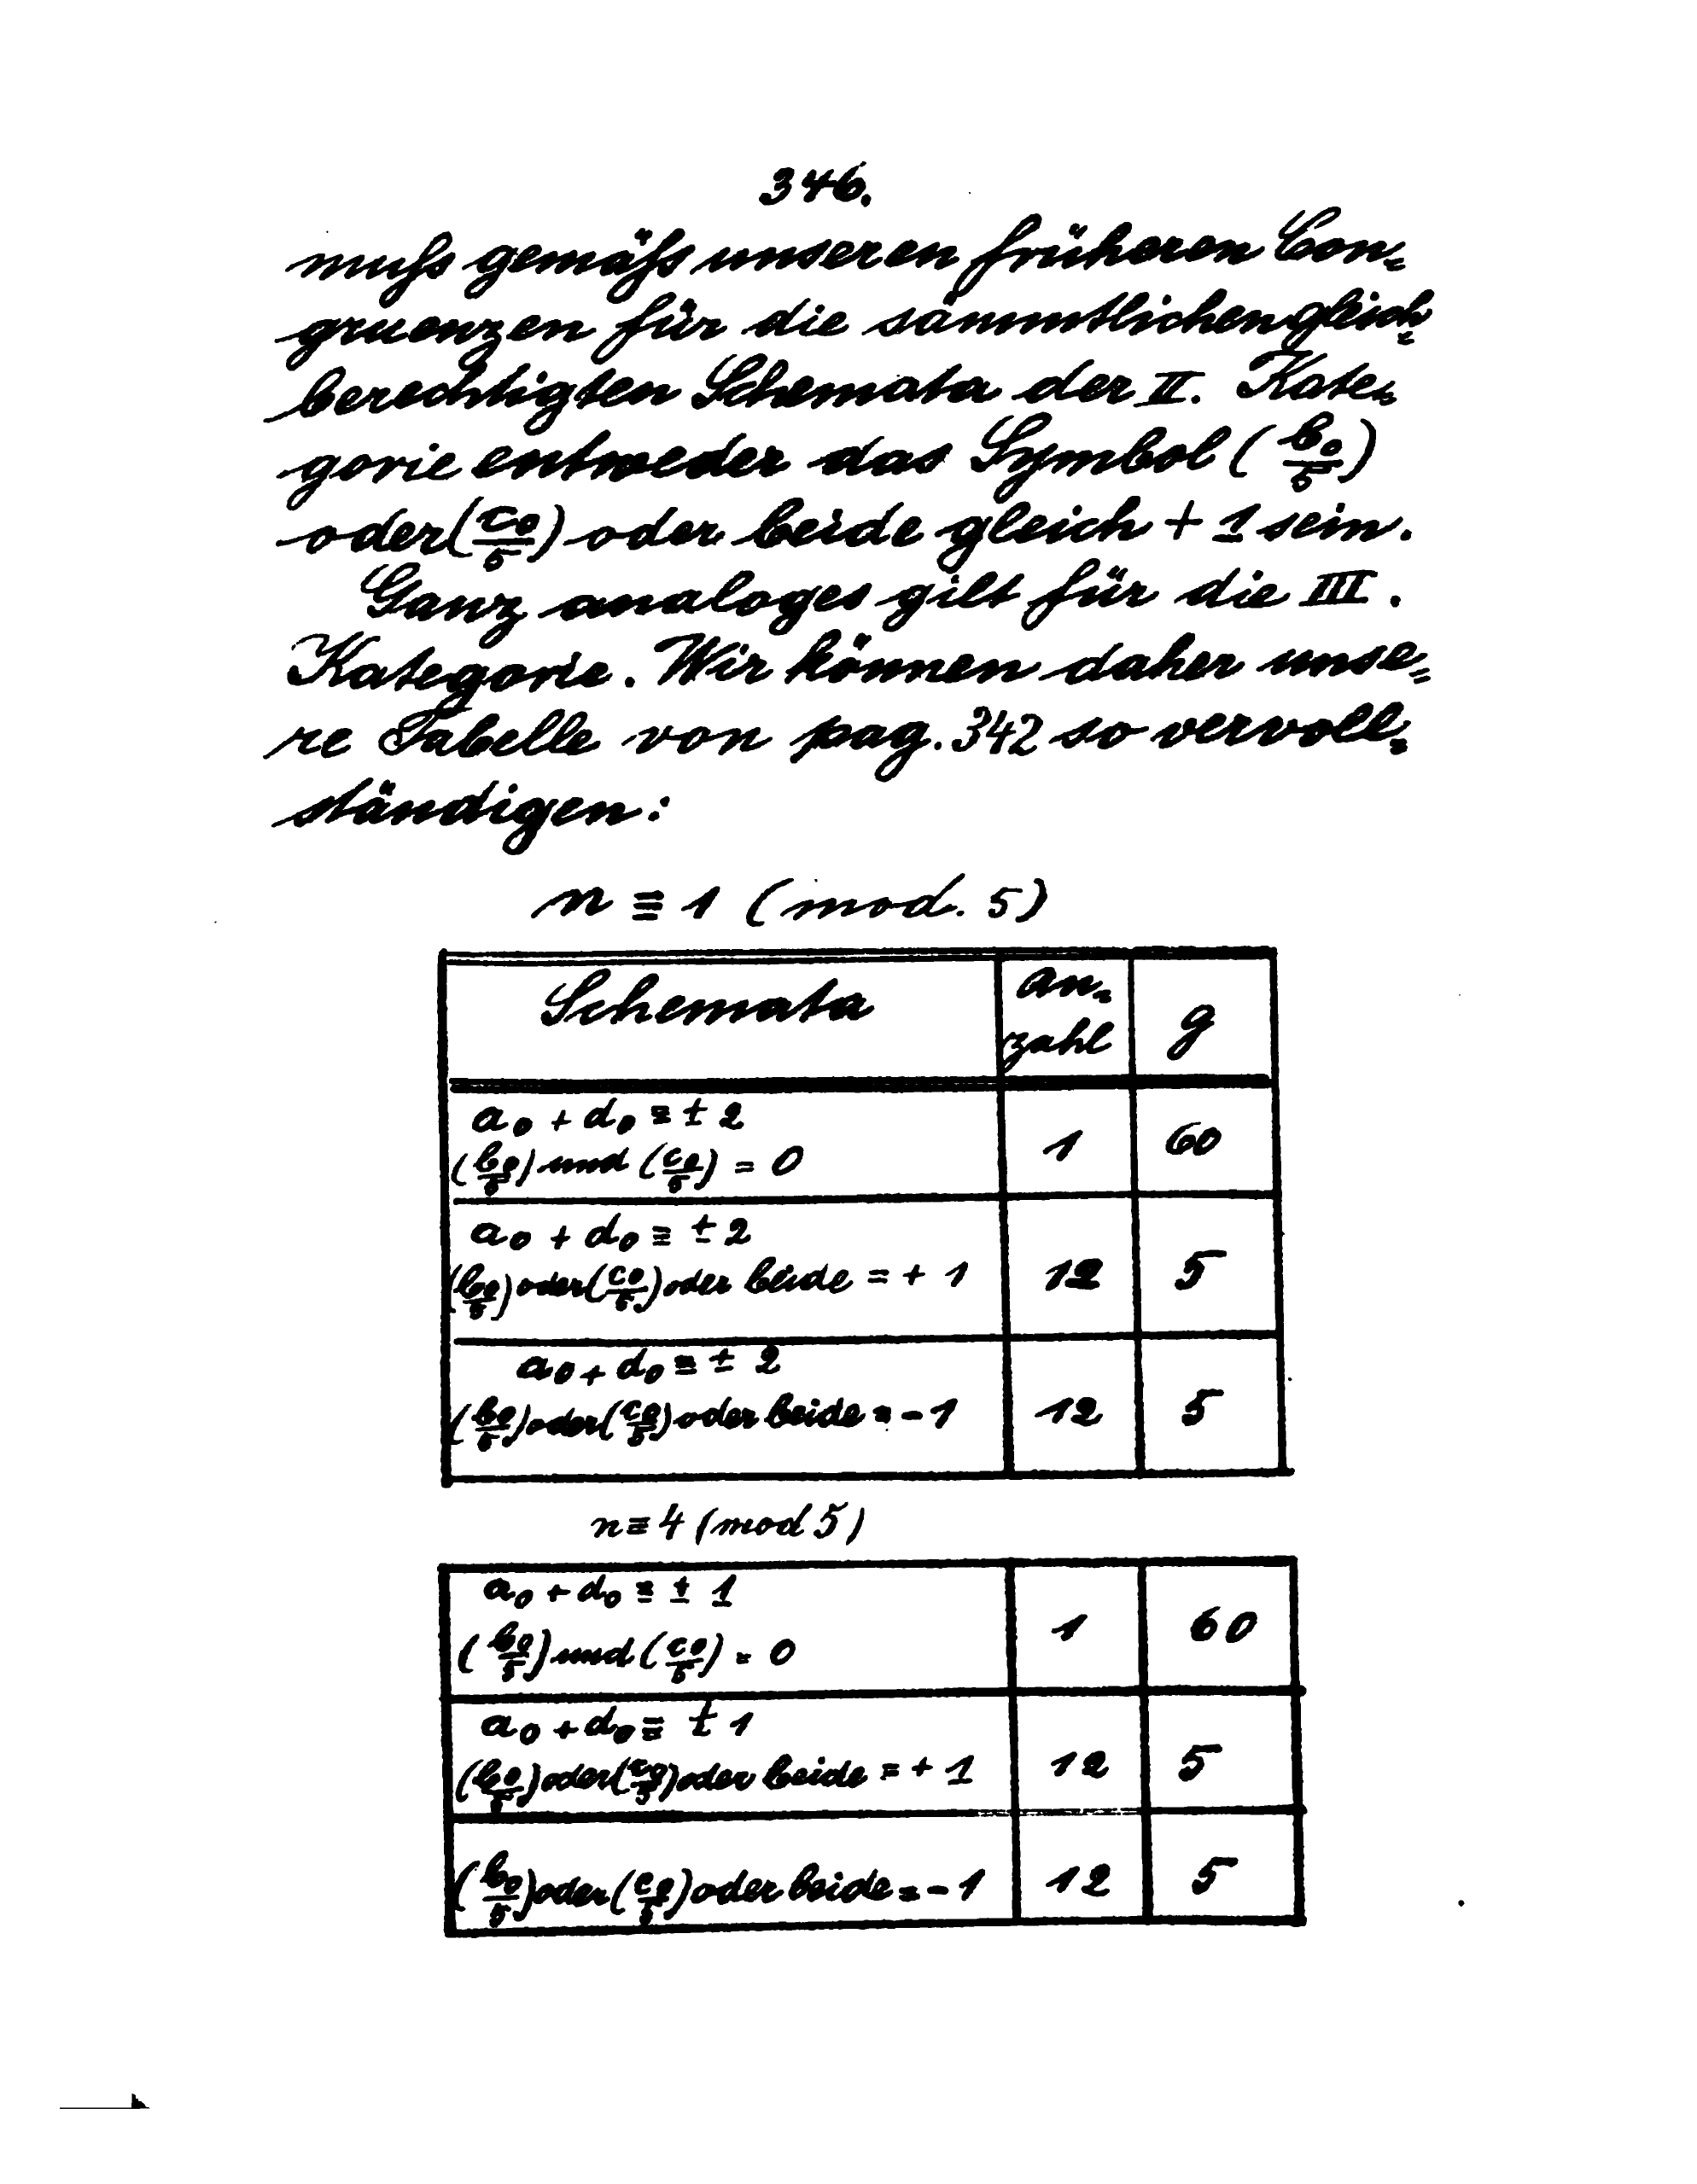 346.
muſs gemäſs unseren früheren Con-
gruenzen für die sämmtlichen gleich-
berechtigten Schemata der II. Kate-
gorie entweder das Symbol (b₀/5)
oder (c₀/5) oder beide gleich + 1 sein.
Ganz analoges gilt für die III.
Kategorie. Wir können daher unse-
re Tabelle von pag. 342 so vervoll-
ständigen:
n ≡ 1 (mod. 5)
Schemata | An-
zahl | g
a₀ + d₀ ≡ ± 2
(b₀/5) und (c₀/5) = 0 | 1 | 60
a₀ + d₀ ≡ ± 2
(b₀/5) oder (c₀/5) oder beide = + 1 | 12 | 5
a₀ + d₀ ≡ ± 2
(b₀/5) oder (c₀/5) oder beide = - 1 | 12 | 5
n ≡ 4 (mod 5)
a₀ + d₀ ≡ ± 1
(b₀/5) und (c₀/5) = 0 | 1 | 60
a₀ + d₀ ≡ ± 1
(b₀/5) oder (c₀/5) oder beide = + 1 | 12 | 5
(b₀/5) oder (c₀/5) oder beide = - 1 | 12 | 5